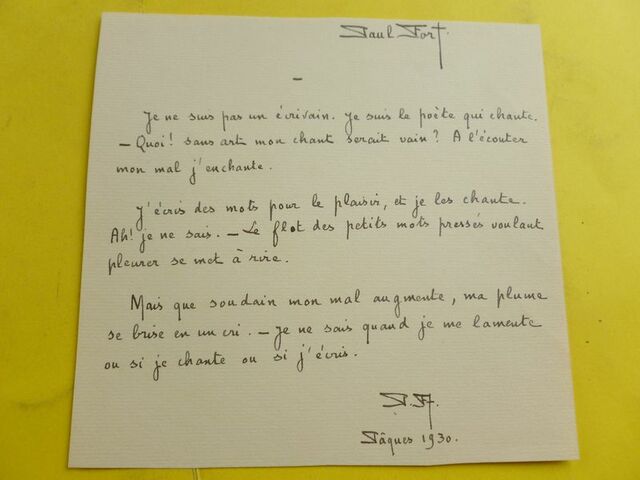 Paul Fort.
—
Je ne suis pas un écrivain. Je suis le poète qui chante.
— Quoi! sans art mon chant serait vain? A l'écouter
mon mal j'enchante.
J'écris des mots pour le plaisir, et je les chante.
Ah! je ne sais. — Le flot des petits mots pressés voulant
pleurer se met à rire.
Mais que soudain mon mal augmente, ma plume
se brise en un cri. — Je ne sais quand je me lamente
ou si je chante ou si j'écris.
P. F.
Pâques 1930.